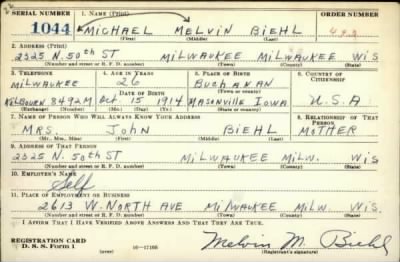 SERIAL NUMBER 1. NAME (Print) ORDER NUMBER
1044 MICHAEL MELVIN BIEHL
(First) (Middle) (Last)
2. ADDRESS (Print)
2325 N. 50th ST MILWAUKEE MILWAUKEE WIS
(Number and street or R. F. D. number) (Town) (County) (State)
3. TELEPHONE 4. AGE IN YEARS 5. PLACE OF BIRTH 6. COUNTRY OF CITIZENSHIP
MILWAUKEE 26 BUCHANAN
DATE OF BIRTH
KILBOURN 8492M Oct. 15 1914 MASONVILLE IOWA U.S.A
(Mo.) (Day) (Yr.)
7. NAME OF PERSON WHO WILL ALWAYS KNOW YOUR ADDRESS 8. RELATIONSHIP OF THAT PERSON
MRS. JOHN BIEHL MOTHER
(Mr., Mrs., Miss) (First) (Middle) (Last)
9. ADDRESS OF THAT PERSON
2325 N. 50th ST MILWAUKEE MILW. WIS
(Number and street or R. F. D. number) (Town) (County) (State)
10. EMPLOYER'S NAME
Self
11. PLACE OF EMPLOYMENT OR BUSINESS
2613 W. NORTH AVE MILWAUKEE MILW. WIS.
(Number and street or R. F. D. number) (Town) (County) (State)
I AFFIRM THAT I HAVE VERIFIED ABOVE ANSWERS AND THAT THEY ARE TRUE.
REGISTRATION CARD
D. S. S. Form 1 16-17105 Melvin M. Biehl
(Registrant's signature)